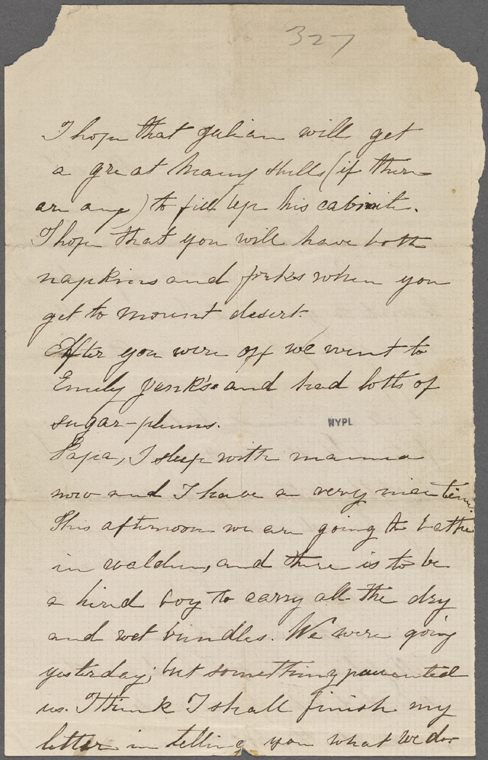 327
I hope that Julian will get
a great many shells (if there
are any) to fill up his cabinit.
I hope that you will have both
napkins and forkes when you
get to mount desert.
After you were off we went to
Emily and had lotts of
sugar-plums.
NYPL
Papa, I sleep with mamma
now and I have a very nice time.
This afternoon we are going to bathe
in walden, and there is to be
a hired boy to carry all the dry
and wet bundles. We were going
yesterday; but something pavented
us. I think I shall finish my
letter in telling you what we do.